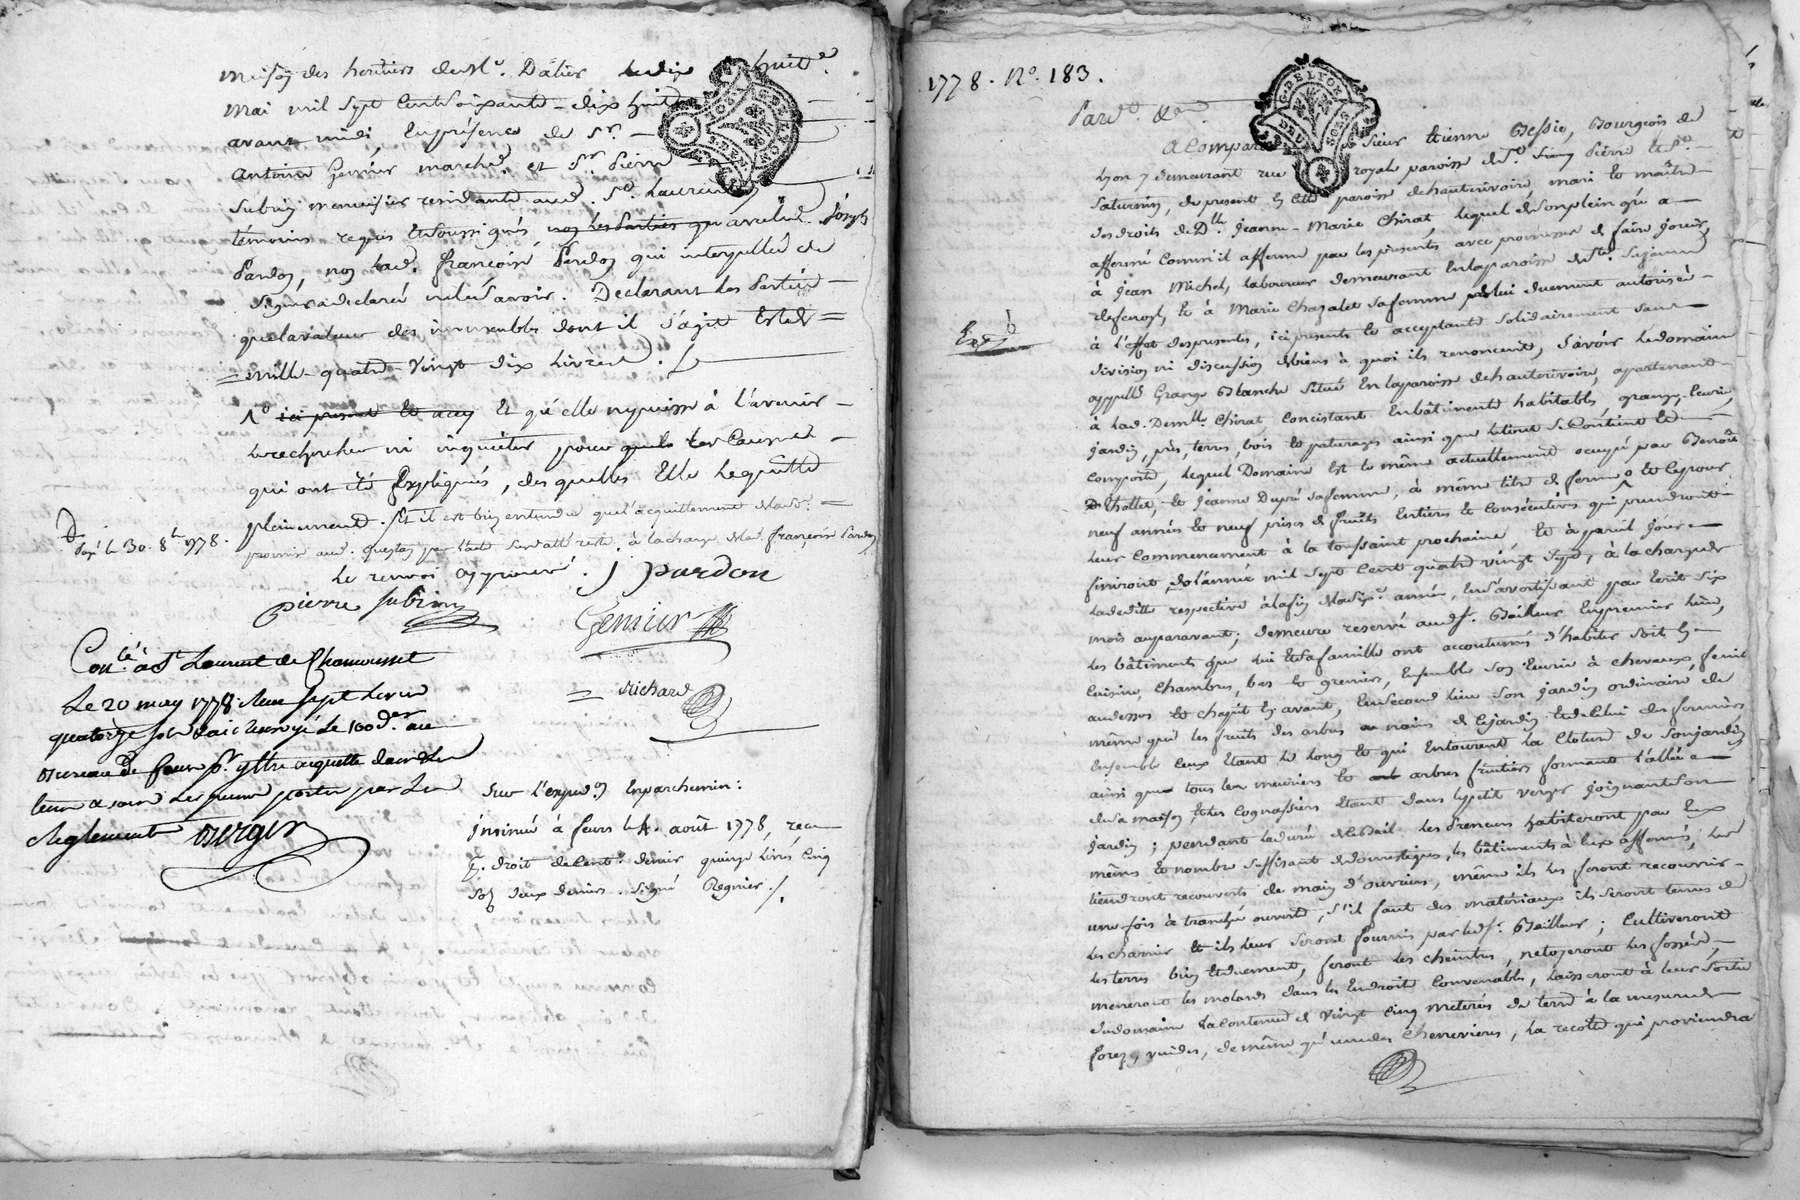 maison des heritiers de Mr. Dalier le dix huit
mai mil sept cent soixante-dix huit
avant midi, En présence de Sr.
antoine Genier marchd. et Sr. Pierre
Subrin menuisier residants aud. St. Laurent
témoins requis Et soussignés avec led. Joseph
Pardon, non lad. françoise Pardon qui interpellée de
signer a declaré ne le savoir. Declarant les Parties
que la valeur des immeubles dont il s'agit Est de
mille-quatre-vingt dix Livres.
1º ici present et accep Et qu'elle ne puisse à l'avenir
le rechercher ni inquieter pour les Causes
qui ont été Expliquées, des quelles Elle le quitte
pleinement. Et il est bien entendu que l'acquittement
reste à la charge de lad. françoise Pardon
Le renvoi approuvé. J pardon
pierre subrin
Genier
Richard
Payé le 30. 8bre 1778.
Conté. à St Laurent de Chamousset
Le 20 may 1778. Reçu sept livres
quatorze sols renvoyé le 100e der. au
Bureau de feurs
Reglement Berger
Sur l'expedon. En parchemin:
Insinué à feurs le 4. août 1778, reçu
pr. droit de Cente. denier quinze livres cinq
sols deux deniers. signé Regnier.
1778. No. 183.
Pardt. &a.
A Comparu Sieur Etienne Bessie, Bourgeois de
Lyon y demeurant rue royale paroisse de St. Pierre et St.
Saturnin, de present En cette paroisse de hauterivoire, mari Et maitre
des droits de Dlle. Jeanne-Marie Chirat, lequel de son plein gré a
affermé Comme il afferme par les presentes avec promesse de faire jouir,
à Jean Michel, laboureur demeurant En la paroisse de Ste.
Et à Marie Chazalet sa femme de lui duement autorisée
à l'effet des presentes, ici presents Et acceptants solidairement sans
division ni discussion de biens à quoi ils renoncent, Savoir le domaine
appellé Grange Blanche situé En la paroisse de hauterivoire, apartenant
à lad. Demlle. Chirat Concistant En bâtiments habitables, grange, Ecurie,
jardin, prés, terres, bois Et paturages ainsi que le tout se Contient Et
comporte, lequel Domaine Est le même actuellement occupé par Benoit
Thollet, Et Jeanne Dupré sa femme, à même titre de ferme Et Ce pour
neuf années Et neuf prises de fruits Entieres Et Consécutives qui prendront
leur Commencement à la toussaint prochaine Et à pareil jour
finiront, de l'année mil sept cent quatre vingt sept, à la charge de
la dedite respective à la fin de la sixe. année, En s'avertissant par Ecrit six
mois auparavant; demeure reservé aud. Sr. Bailleur En premier lieu,
les bâtiments que lui Et sa famille ont accoutumés d'habiter soit En
Cuisine, Chambres, bas Et greniers, Ensemble son Ecurie à chevaux, fenil
audessus Et chapit En avant, En second lieu son jardin ordinaire de
même que les fruits des arbres nains de Ce jardin Et de Celui des fermiers
Ensemble Ceux Etant le long Et qui Entourent la Cloture de son jardin
ainsi que tous les meuriers Et arbres fruitiers formant l'allée
de sa maison, Et les Cognassiers Etant dans le petit verger joignant son
jardin; pendant la durée du bail les Preneurs habiteront par Eux
mêmes Et nombre suffisant de domestiques, les bâtiments à Eux affermés, les
tiendront recouverts de main d'ouvriers, même ils les feront recouvrir
une fois à tranche ouverte, s'il faut des matériaux ils seront tenus de
les charrier Et ils leur seront fournis par led. Sr. Bailleur; Cultiveront
les terres bien Et duement, feront les cheintres, netoyeront les fossés,
meneront les molards dans les Endroits Convenables, laisseront à leur sortie
du domaine la Contenue de vingt cinq meterés de terre à la mesure de
forez, vuides, de même qu'une des chenevieres, la recolte qui proviendra